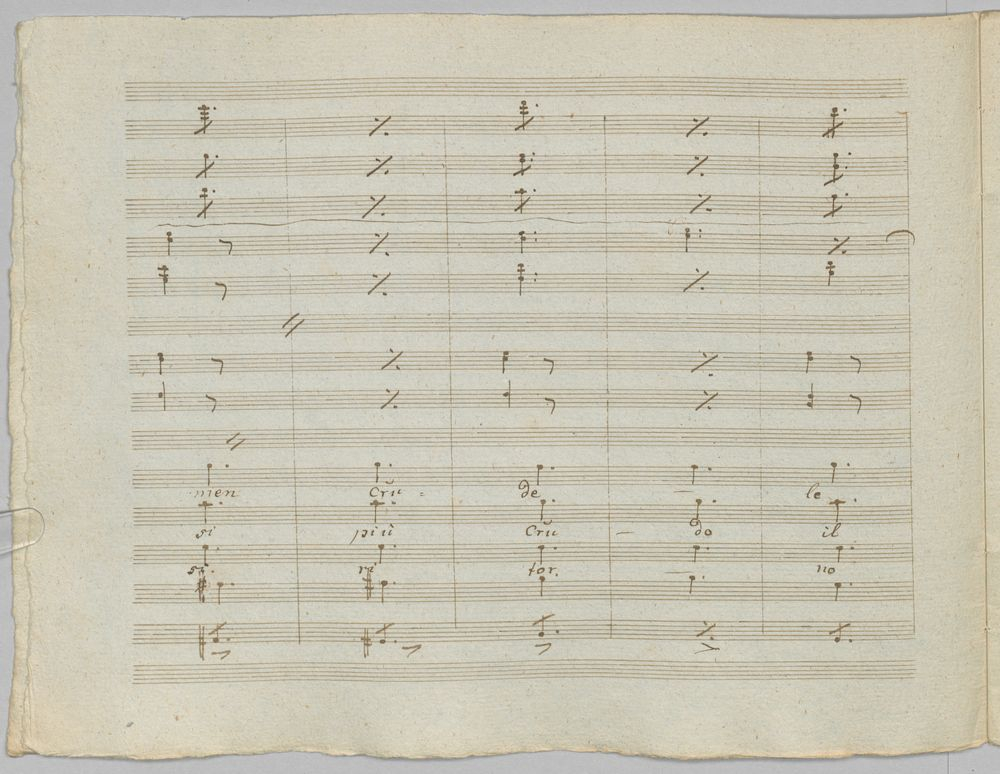 men Cru = de — le
si più Cru — do il
si. ri tor. — no